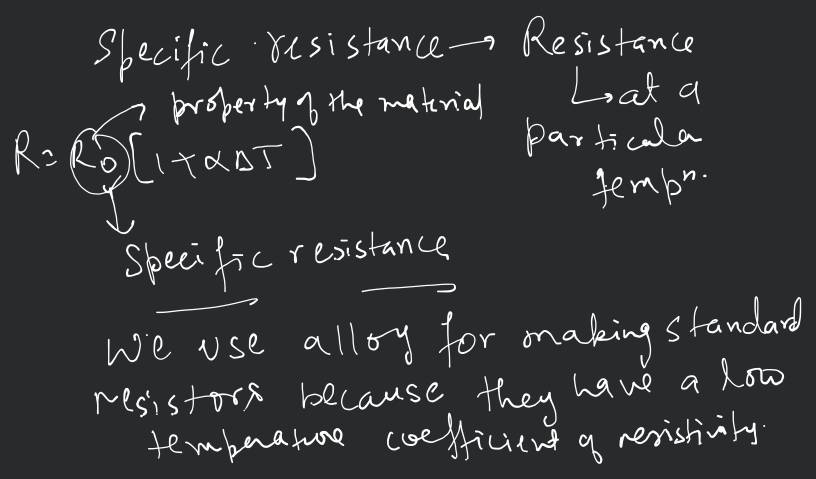 Specific resistance → Resistance
↳ at a
particula
tempⁿ.
property of the material
R = R₀ [1 + α Δ T]
Specific resistance
We use alloy for making standard
resistors because they have a low
temperature coefficient of resistivity.